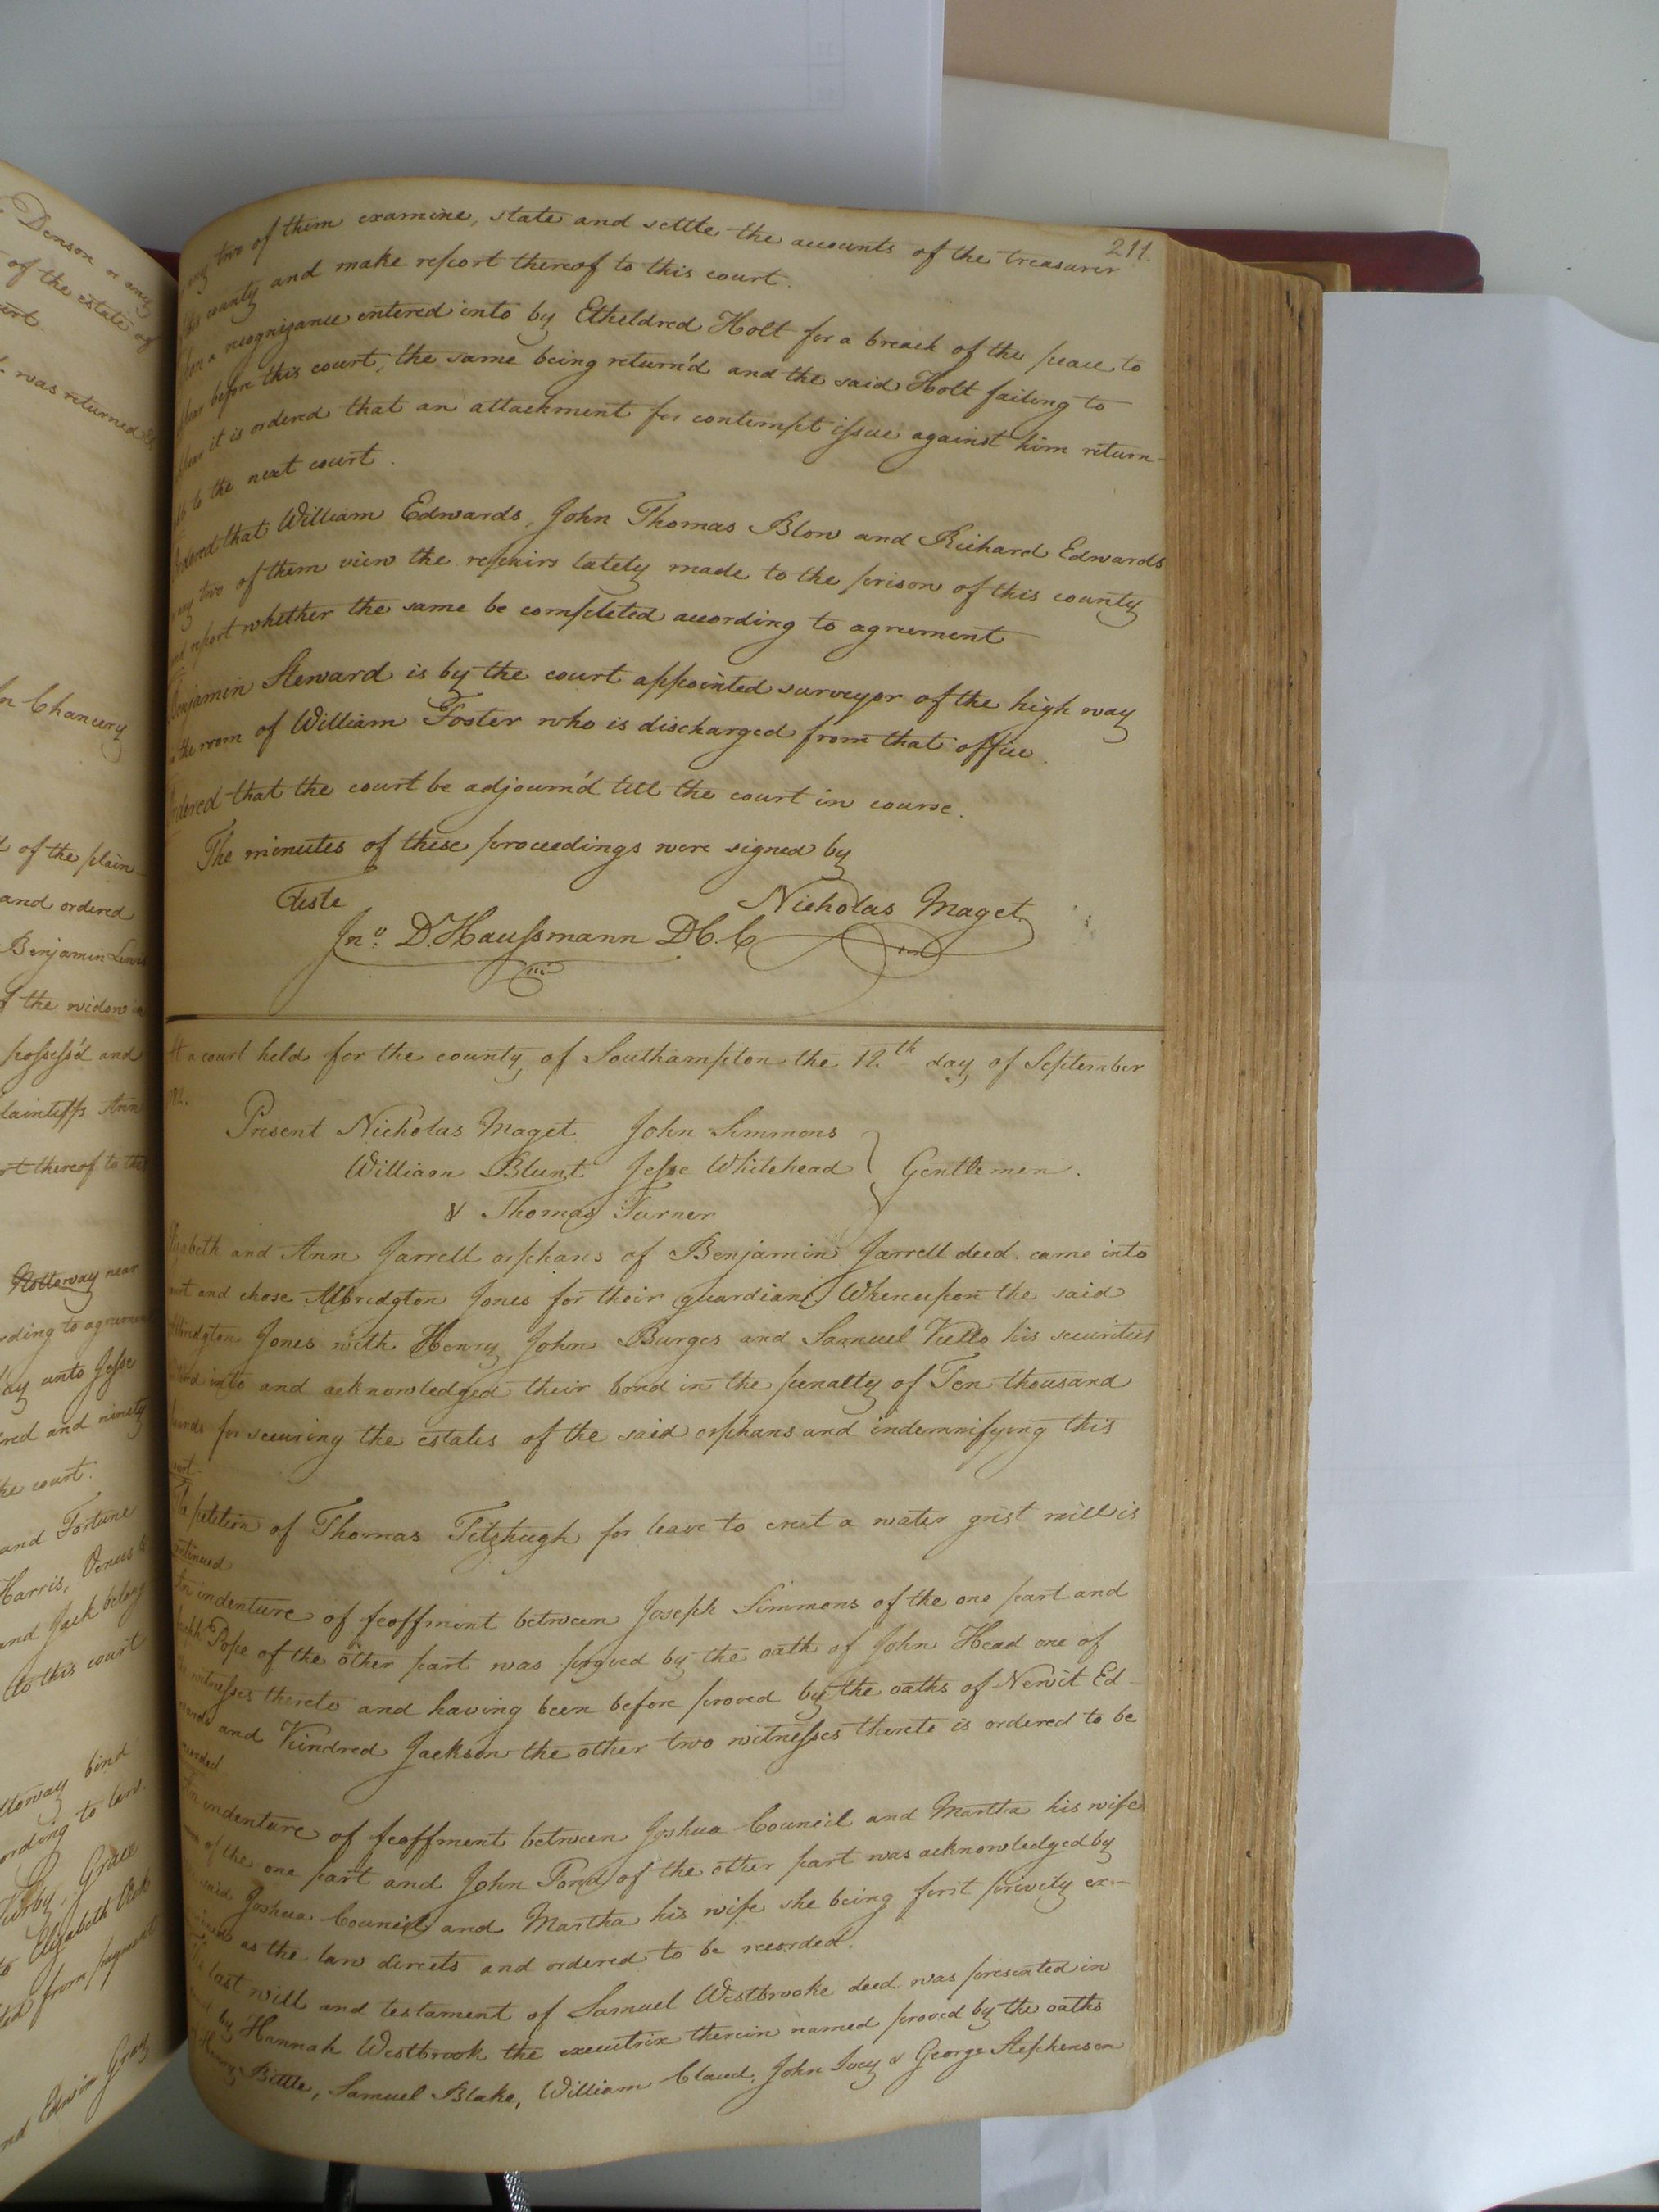 Denson or any
of the estate of
was returned &
In Chancery
of the plain-
and ordered
Benjamin Lewis
of the widow
possess'd and
plaintiffs Ann
thereof to this
Holloway near
according to agreement
unto Jesse
and ninety
the court.
and Fortune
Harris, Venus &
and Jack belong
to this court
bind
to law.
Kirby, Grace
to Elizabeth
from payment
and Edwin Gray
211.
any two of them examine, state and settle the accounts of the treasurer
this county and make report thereof to this court.
Upon a recognizance entered into by Etheldred Holt for a breach of the peace to
appear before this court, the same being return'd and the said Holt failing to
appear it is ordered that an attachment for contempt issue against him return-
able to the next court.
Ordered that William Edwards, John Thomas Blow and Richard Edwards
or any two of them view the repairs lately made to the prison of this county
and report whether the same be completed according to agreement
Benjamin Steward is by the court appointed surveyor of the high way
in the room of William Foster who is discharged from that office.
Ordered that the court be adjourn'd till the court in course.
The minutes of these proceedings were signed by
Teste Nicholas Maget
Jno. D. Haussmann D.C.C
At a court held for the county of Southampton the 12.th day of September
Present Nicholas Maget John Simmons
William Blunt Jesse Whitehead } Gentlemen.
& Thomas Turner
Elizabeth and Ann Jarrell orphans of Benjamin Jarrell deed. came into
court and chose Albridgton Jones for their guardian Whereupon the said
Albridgton Jones with Henry John Burges and Samuel Kello his securities
entered into and acknowledged their bond in the penalty of Ten thousand
pounds for securing the estates of the said orphans and indemnifying this
court.
The petition of Thomas Fitzhugh for leave to erect a water grist mill is
continued
An indenture of feoffment between Joseph Simmons of the one part and
Joseph Pope of the other part was proved by the oath of John Head one of
the witnesses thereto and having been before proved by the oaths of Newit Ed-
wards and Kindred Jackson the other two witnesses thereto is ordered to be
recorded
An indenture of feoffment between Joshua Council and Martha his wife
of the one part and John Pond of the other part was acknowledged by
the said Joshua Council and Martha his wife she being first privily ex-
amined as the law directs and ordered to be recorded.
The last will and testament of Samuel Westbrooke deed. was presented in
court by Hannah Westbrook the executrix therein named proved by the oaths
of Henry Bittle, Samuel Blake, William Claud, John Ivey & George Stephenson